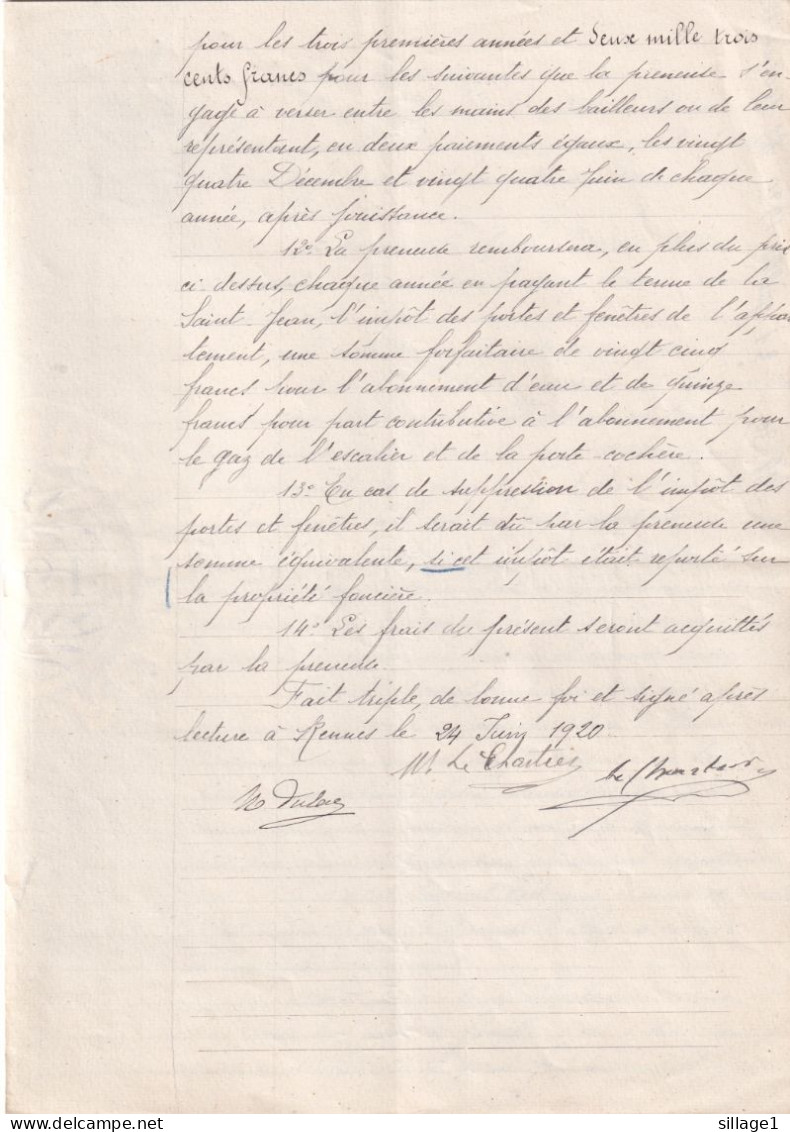 pour les trois premières années et deux mille trois
cents francs pour les suivantes que la preneuse s'en-
gage à verser entre les mains des bailleurs ou de leur
représentant, en deux paiements égaux, les vingt
quatre Décembre et vingt quatre Juin de chaque
année, après jouissance.
12° La preneuse remboursera, en plus du prix
ci-dessus, chaque année en payant le terme de la
Saint-Jean, l'impôt des portes et fenêtres de l'appar
tement, une somme forfaitaire de vingt cinq
francs pour l'abonnement d'eau et de quinze
francs pour part contributive à l'abonnement pour
le gaz de l'escalier et de la porte-cochère.
13° En cas de suppression de l'impôt des
portes et fenêtres, il serait dû par la preneuse une
somme équivalente, si cet impôt était reporté sur
la propriété foncière.
14° Les frais du présent seront acquittés
par la preneuse.
Fait triple, de bonne foi et signé après
lecture à Rennes le 24 Juin 1920.
M. Le Chartier
sillage1